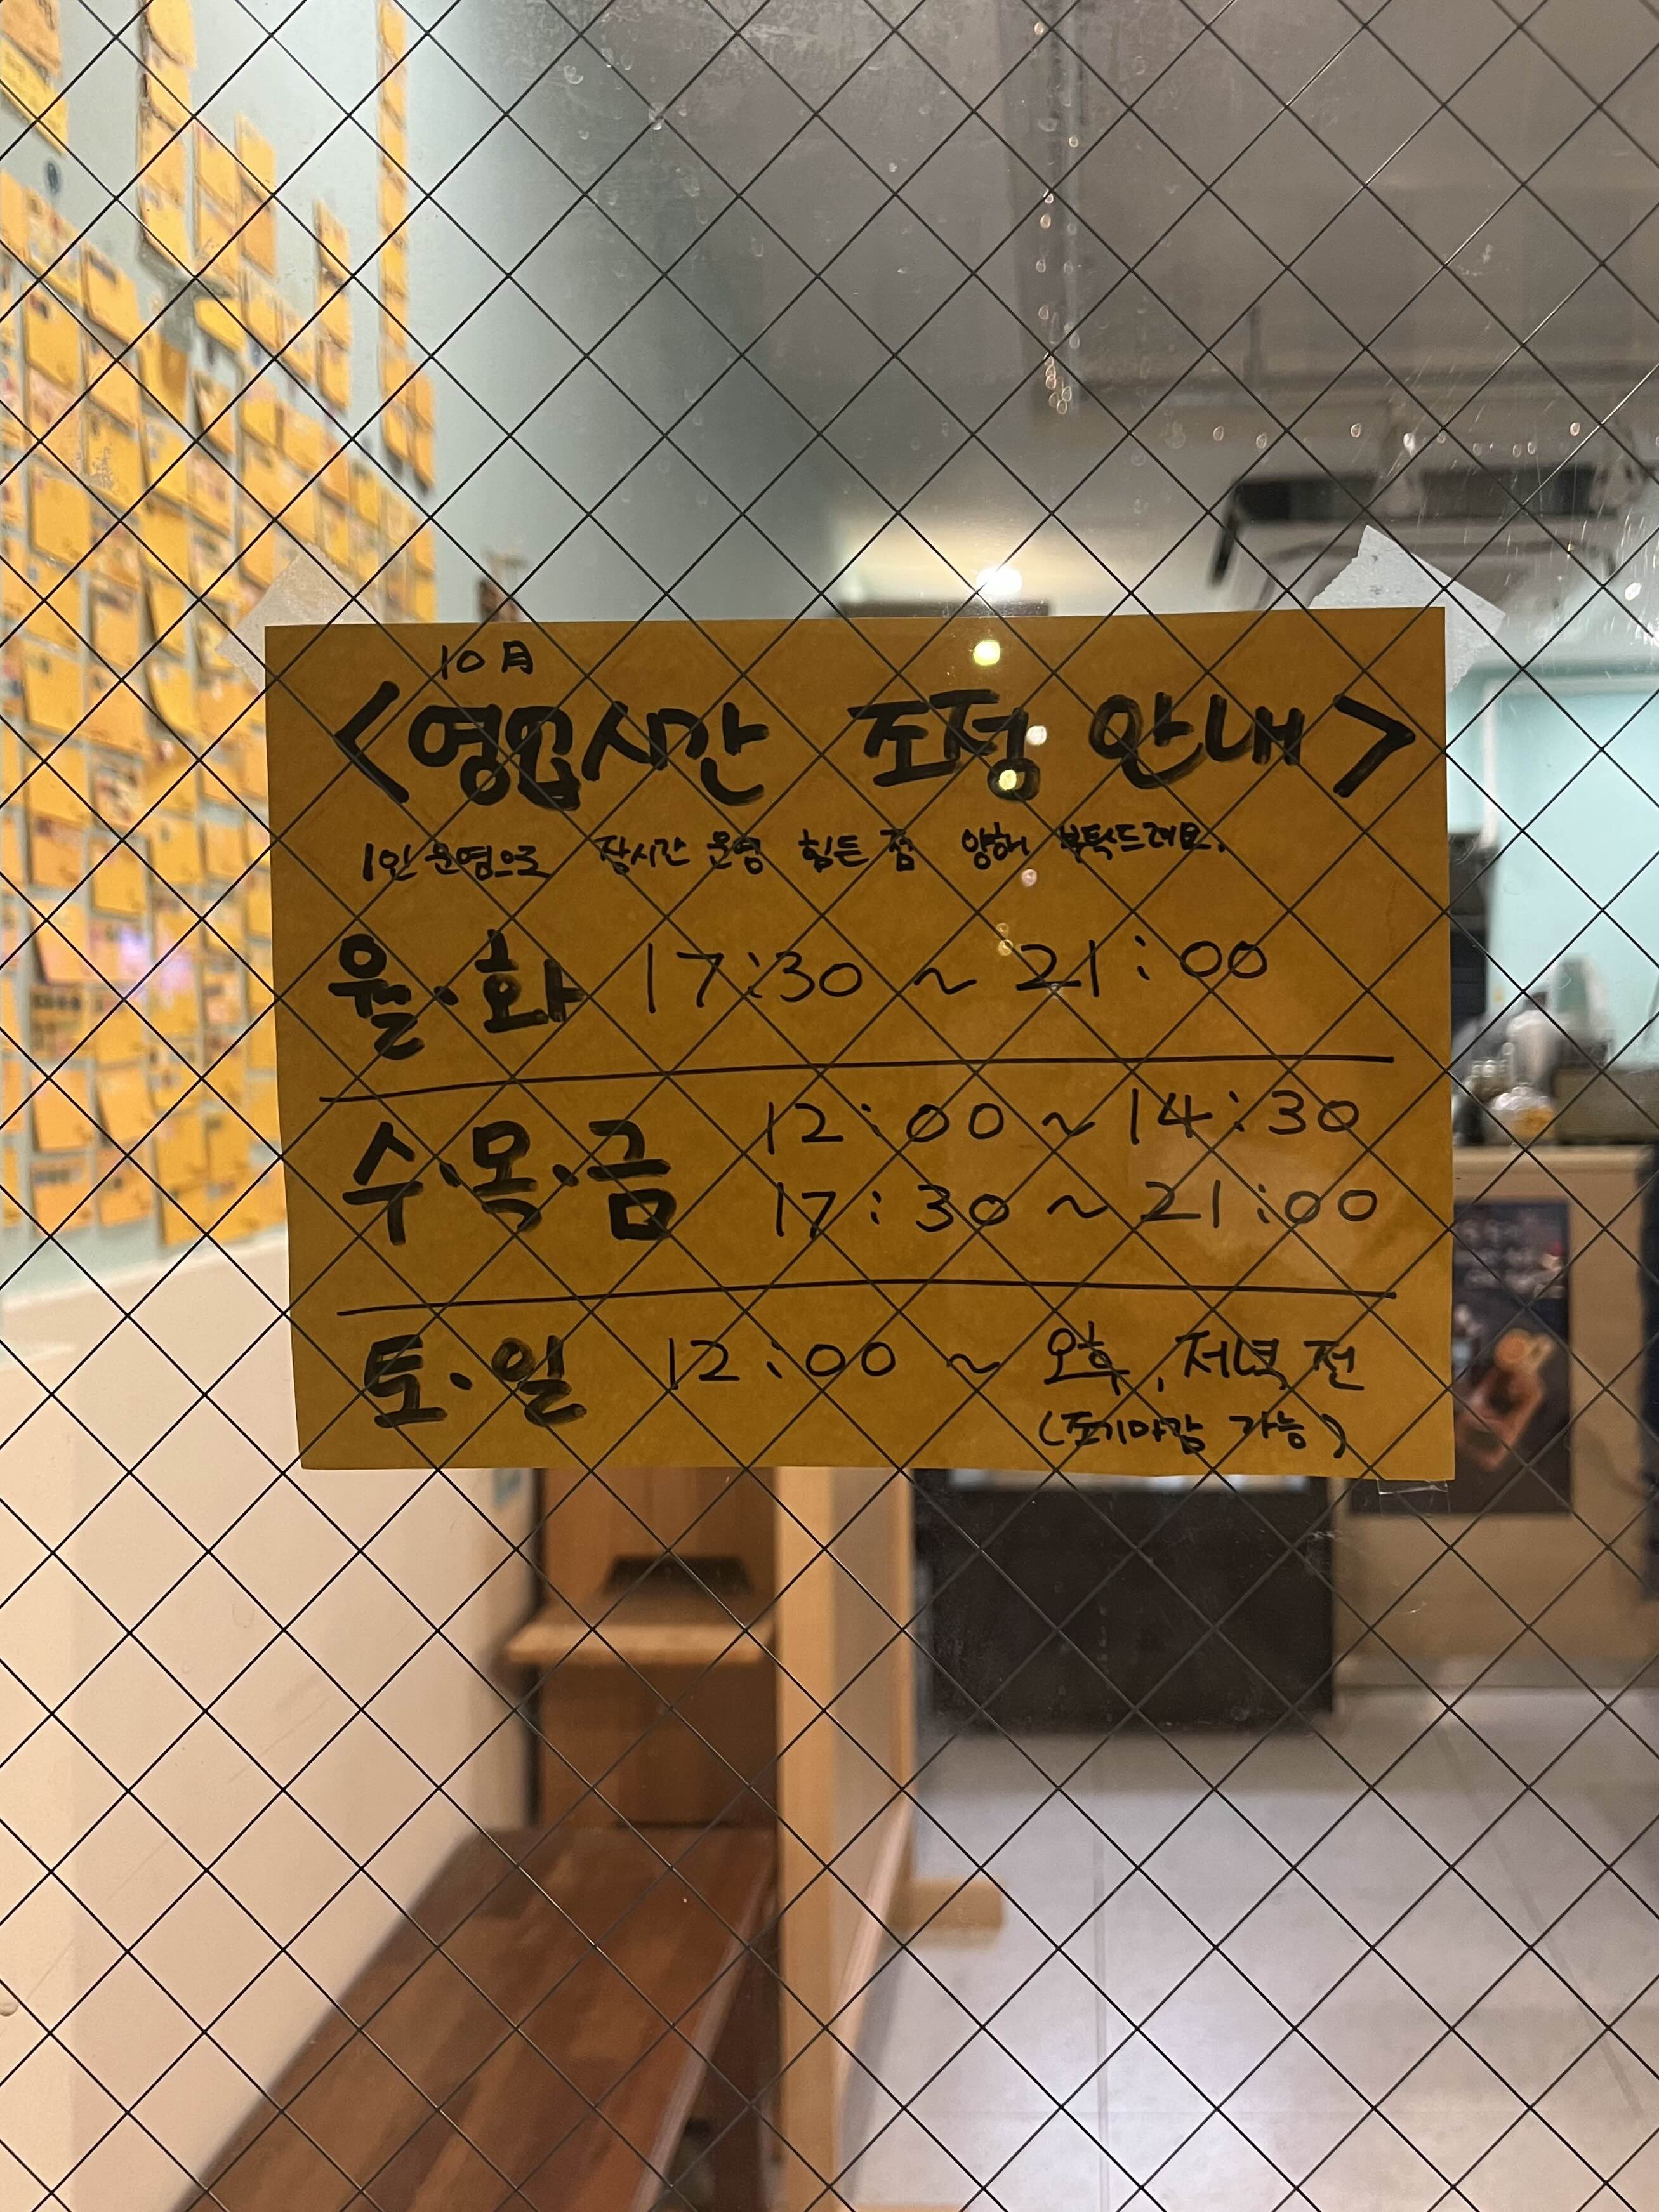 10月
<영업시간 조정 안내>
1인 운영으로 장시간 운영 힘든 점 양해 부탁드려요.
월·화 17:30 ~ 21:00
수·목·금 12:00 ~ 14:30
17:30 ~ 21:00
토·일 12:00 ~ 오후, 저녁 전
(조기마감 가능)